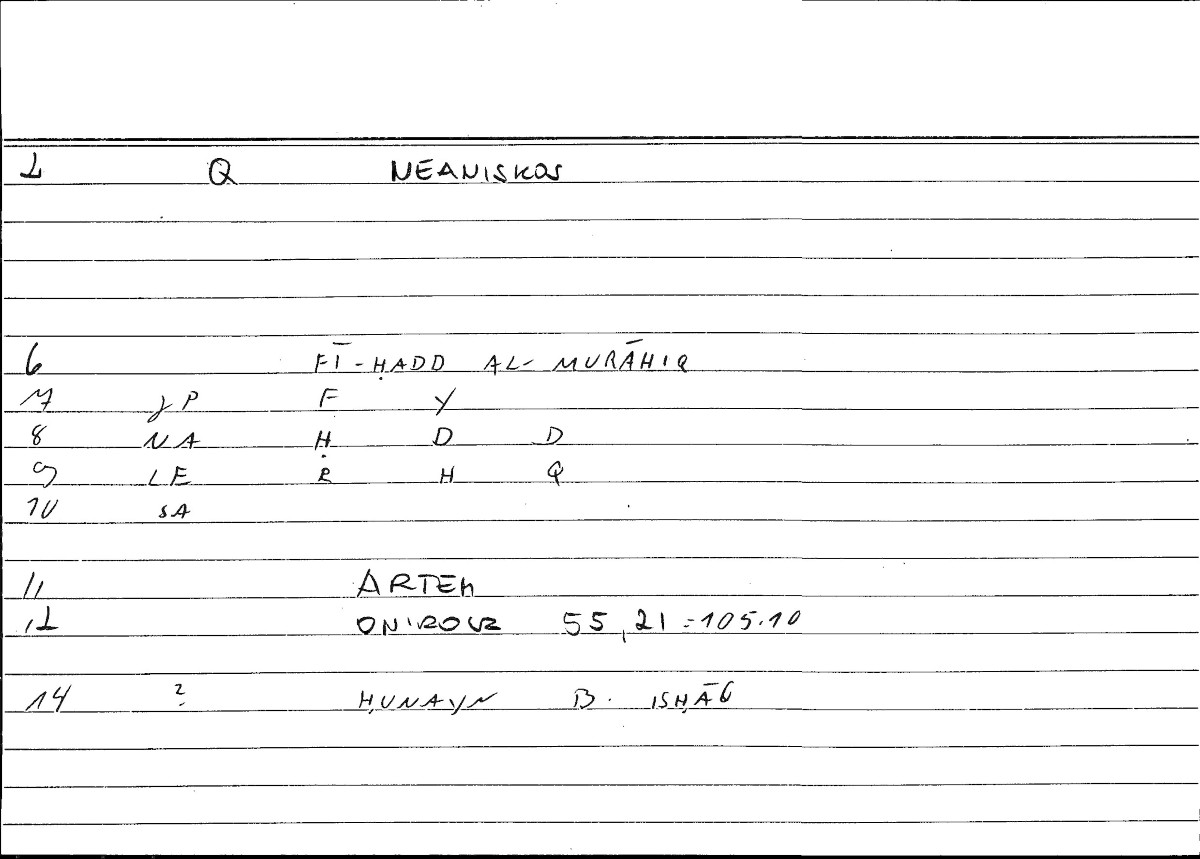 2 Q NEANISKOS
6 FĪ-ḤADD AL-MURĀHIQ
7 JP F Y
8 NA Ḥ D D
9 LE R H Q
10 SA
11 ARTEM
12 ONIROCR 55,21=105.10
14 ? ḤUNAYN B. ISḤĀQ